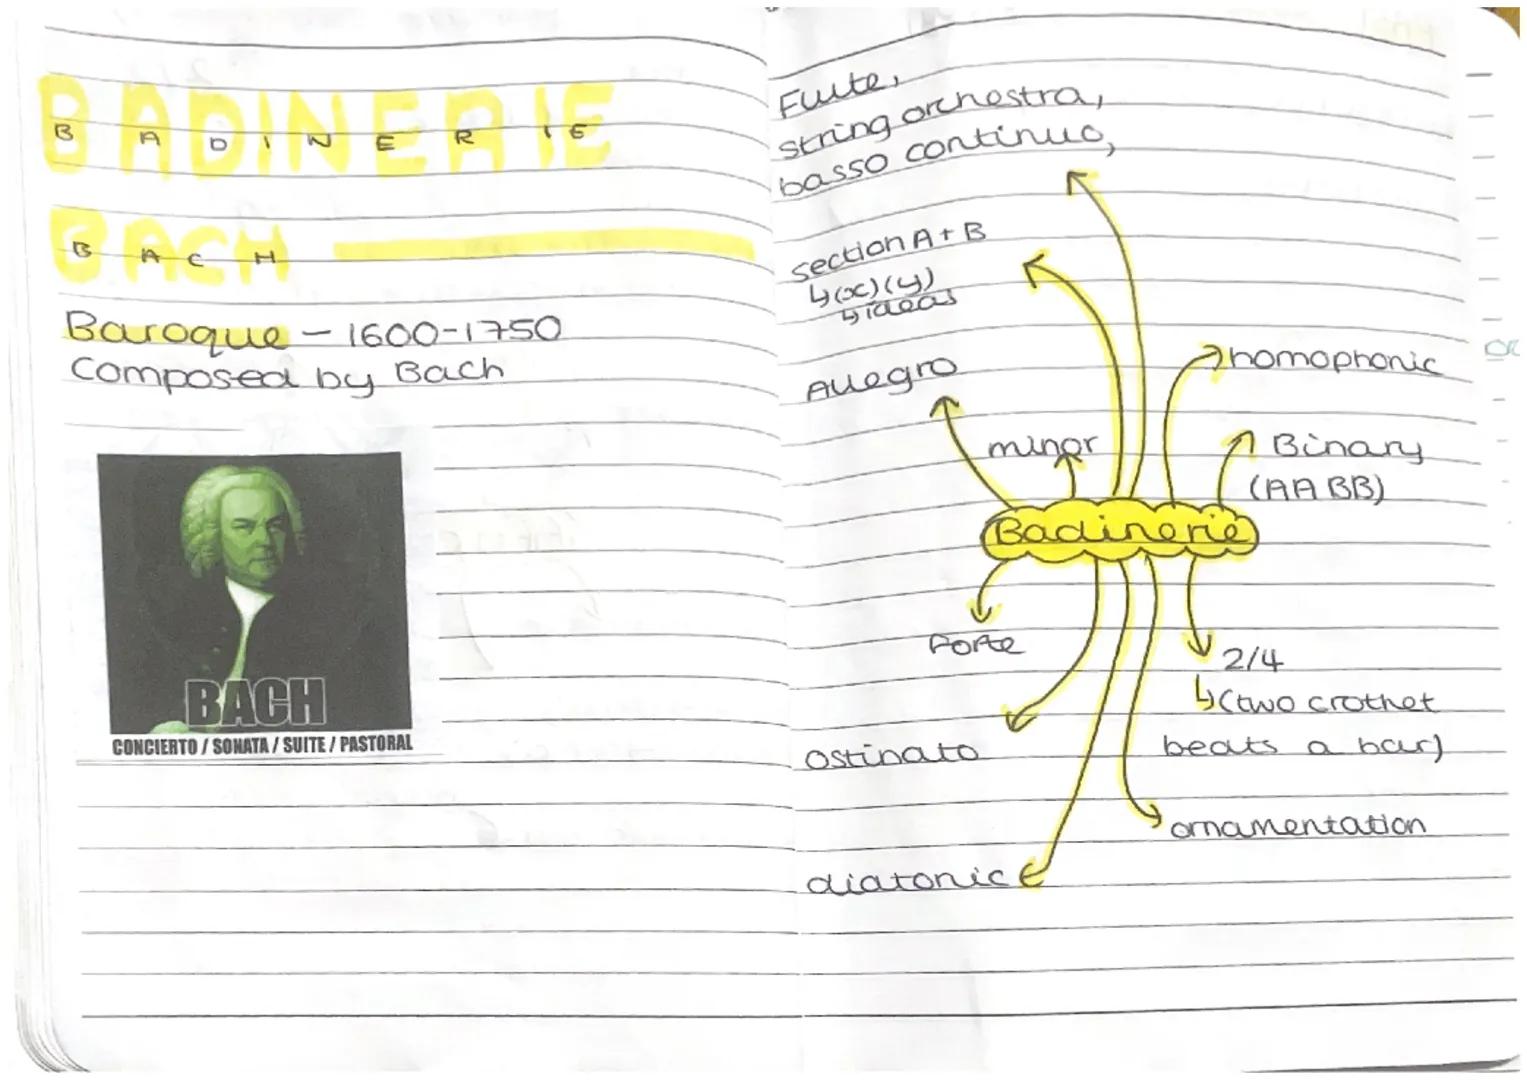 BADINERIE
B A D I N E R I E
BACH
B A C H
Baroque - 1600-1750
Composed by Bach
BACH
CONCIERTO / SONATA / SUITE / PASTORAL
Fulte,
string orchestra,
basso continuo,
section A + B
↳(x)(y)
↳ideas
Allegro
homophonic
minor
Binary
(AA BB)
Badinerie
forte
2/4
↳(two crothet
beats a bar)
ostinato
ornamentation
diatonic